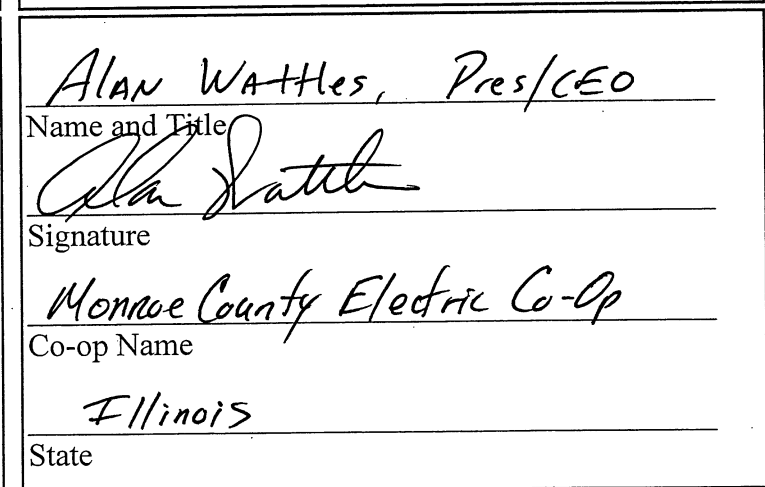 Alan Wattles, Pres/CEO
Name and Title
Alan Wattles
Signature
Monroe County Electric Co-Op
Co-op Name
Illinois
State